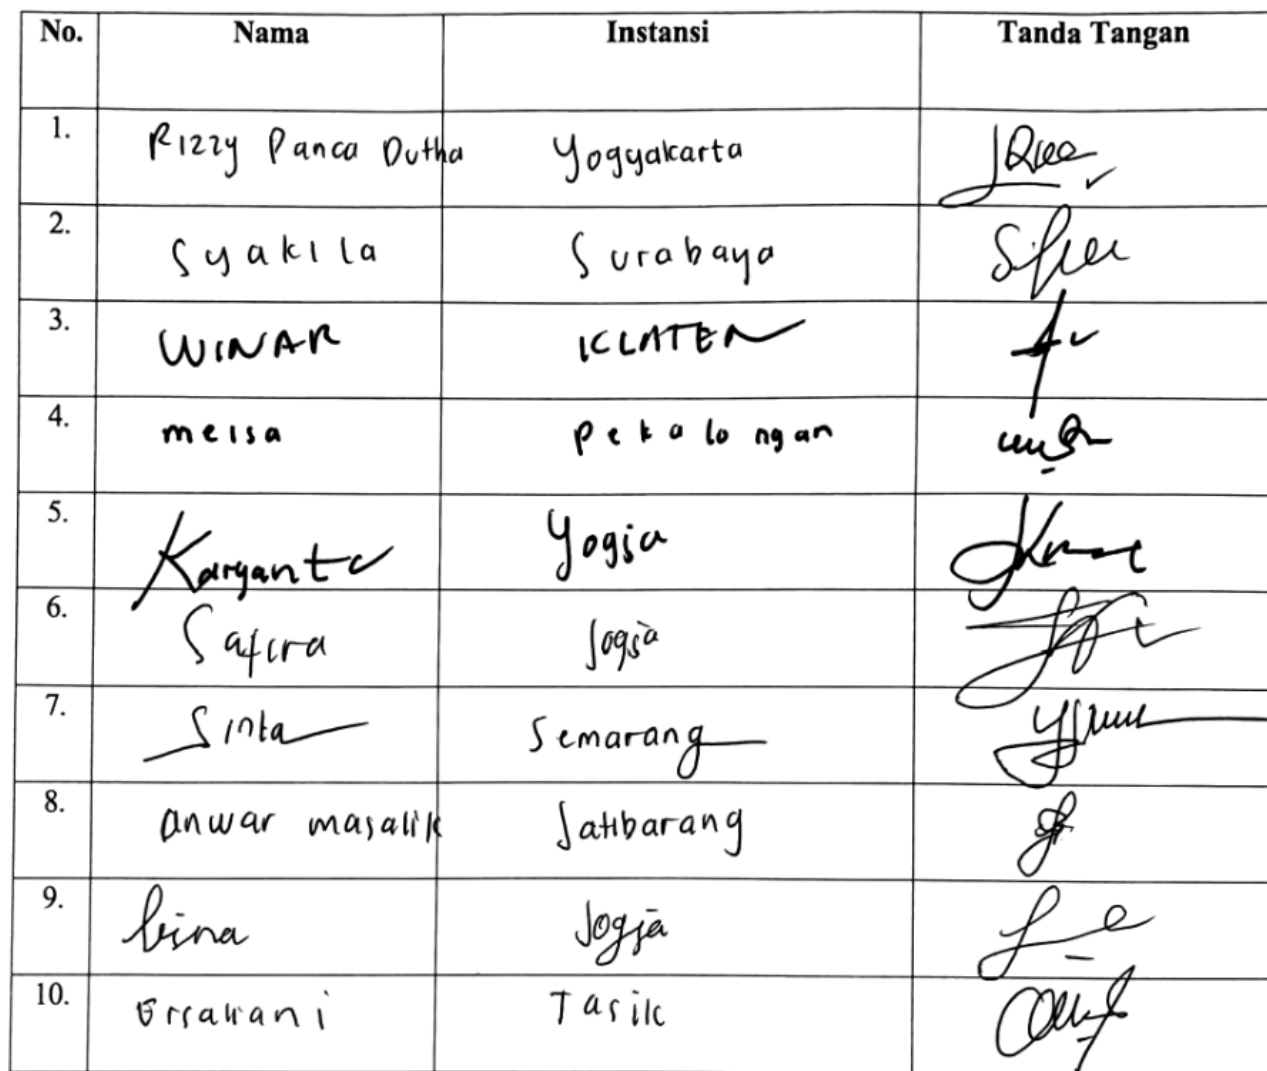 No. Nama Instansi Tanda Tangan
1. Rizzy Panca Dutha Yogyakarta
2. Syakila Surabaya
3. WINAR KLATEN
4. meisa pekalongan
5. Karyanto Yogja
6. Safira Jogja
7. Sinta Semarang
8. anwar masalik Jatibarang
9. bina Jogja
10. Tasik